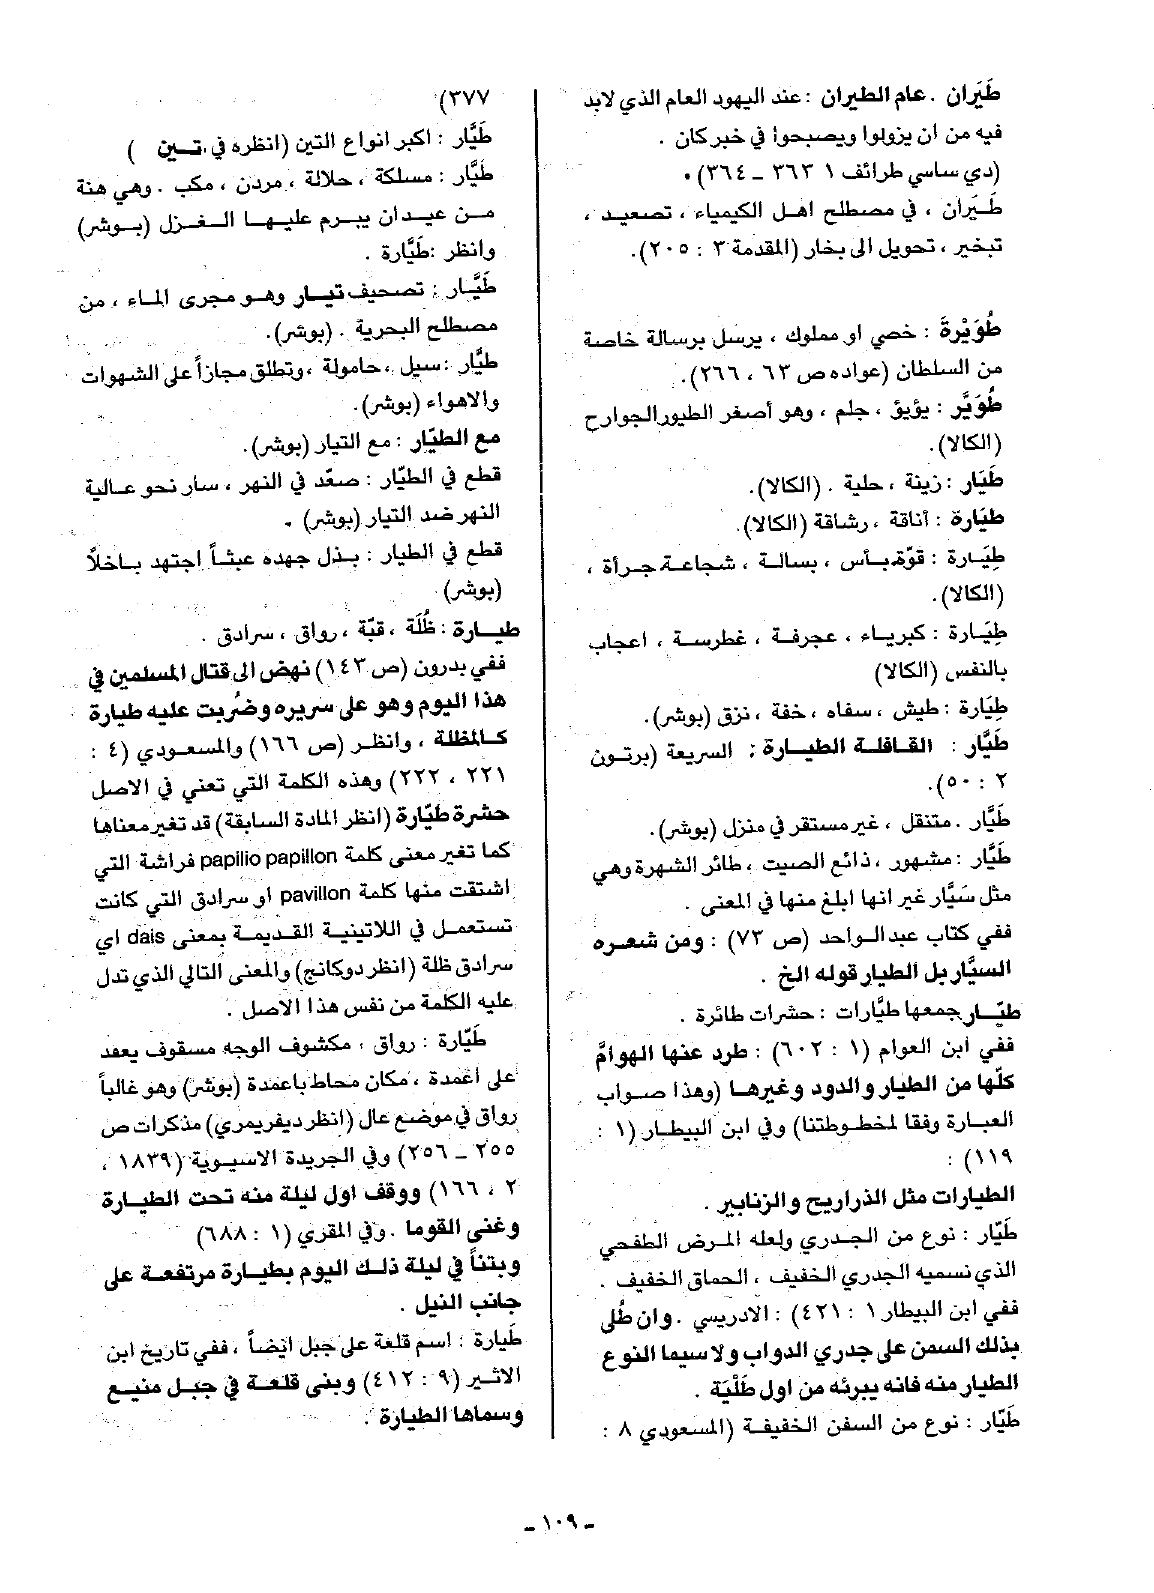 طَيَران . عام الطيران : عند اليهود العام الذي لابد
فيه من ان يزولوا ويصبحوا في خبر كان .
(دي ساسي طرائف ١ ٣٦٣ ـ ٣٦٤) .
طَيَران ، في مصطلح اهل الكيمياء ، تصعيد ،
تبخير ، تحويل الى بخار (المقدمة ٣ : ٢٠٥).
طُوَيْرةَ : خصي او مملوك ، يرسل برسالة خاصة
من السلطان (عواده ص ٦٣ ، ٢٦٦).
طُوَيَّر : يؤيؤ ، جلم ، وهو أصغر الطيور الجوارح
(الكالا).
طَيَار : زينة ، حلية . (الكالا).
طيَارة : أناقة ، رشاقة (الكالا).
طِيَارة : قوّة بأس ، بسالة ، شجاعة جرأة ،
(الكالا).
طِيَارة : كبرياء ، عجرفة ، غطرسة ، اعجاب
بالنفس (الكالا)
طِيَارة : طيش ، سفاه ، خفة ، نزق (بوشر).
طَيَّار : القافلة الطيارة ; السريعة (برتون
٢ : ٥٠).
طَيَّار . متنقل ، غير مستقر في منزل (بوشر).
طَيَّار : مشهور ، ذائع الصيت ، طائر الشهرة وهي
مثل سَيَّار غير انها ابلغ منها في المعنى .
ففي كتاب عبد الواحد (ص ٧٣) : ومن شعره
السيَّار بل الطيار قوله الخ .
طيّار جمعها طيَّارات : حشرات طائرة .
ففي ابن العوام (١ : ٦٠٢) : طرد عنها الهوامَّ
كلّها من الطيار والدود وغيرها (وهذا صواب
العبارة وفقا لمخطوطتنا) وفي ابن البيطار (١ :
١١٩) :
الطيارات مثل الذراريح والزنابير .
طَيّار : نوع من الجدري ولعله المرض الطفحي
الذي نسميه الجدري الخفيف ، الحماق الخفيف .
ففي ابن البيطار ١ : ٤٢١) : الادريسي . وان طُلى
بذلك السمن على جدري الدواب ولاسيما النوع
الطيار منه فانه يبرئه من اول طَلْيَة .
طَيّار : نوع من السفن الخفيفة (المسعودي ٨ :
٣٧٧)
طَيَّار : اكبر انواع التين (انظره في . تين )
طَيَّار : مسلكة ، حلالة ، مردن ، مكب . وهي هنة
من عيدان يبرم عليها الغزل (بوشر)
وانظر : طَيَّارة .
طَيَّار : تصحيف تيار وهو مجرى الماء ، من
مصطلح البحرية . (بوشر).
طيَّار : سيل ، حامولة ، وتطلق مجازاً على الشهوات
والاهواء (بوشر).
مع الطيّار : مع التيار (بوشر).
قطع في الطيّار : صعّد في النهر ، سار نحو عالية
النهر ضد التيار (بوشر) .
قطع في الطيار : بذل جهده عبثاً اجتهد باخلاً
(بوشر)
طيارة : ظُلّة ، قبّة ، رواق ، سرادق .
ففي بدرون (ص ١٤٣) نهض الى قتال المسلمين في
هذا اليوم وهو على سريره وضُربت عليه طيارة
كالمظلة ، وانظر (ص ١٦٦) والمسعودي (٤ :
٢٢١ ، ٢٢٢) وهذه الكلمة التي تعني في الاصل
حشرة طيّارة (انظر المادة السابقة) قد تغير معناها
كما تغير معنى كلمة papilio papillon فراشة التي
اشتقت منها كلمة pavillon او سرادق التي كانت
تستعمل في اللاتينية القديمة بمعنى dais اي
سرادق ظلة (انظر دوكانج) والمعنى التالي الذي تدل
عليه الكلمة من نفس هذا الاصل .
طَيّارة : رواق ، مكشوف الوجه مسقوف يعقد
على أعمدة ، مكان محاط باعمدة (بوشر) وهو غالباً
رواق في موضع عال (انظر ديفريمري) مذكرات ص
٢٥٥ ـ ٢٥٦) وفي الجريدة الاسيوية (١٨٣٩ ،
٢ ، ١٦٦) ووقف اول ليلة منه تحت الطيارة
وغنى القوما . وفي المقري (١ : ٦٨٨)
وبتناً في ليلة ذلك اليوم بطيارة مرتفعة على
جانب النيل .
طَيارة : اسم قلعة على جبل ايضاً ، ففي تاريخ ابن
الاثير (٩ : ٤١٢) وبنى قلعة في جبل منيع
وسماها الطيارة .
ـ ١٠٩ ـ